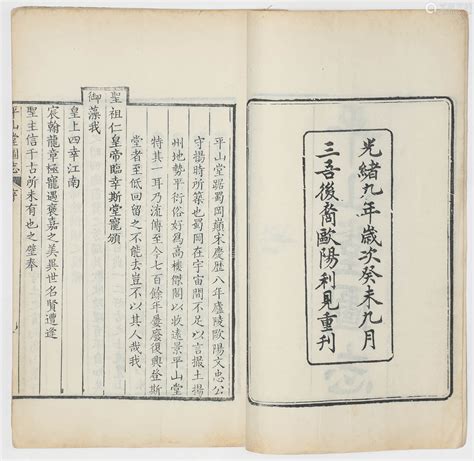 光緒九年歲次癸未九月
三吾後裔歐陽利見重刊
平山堂踞蜀岡巔宋慶歷八年廬陵歐陽文忠公
守揚時所築也蜀岡在宇宙間不足以言撮土揚
州地勢平衍俗好為高樓傑閣以收遠景平山堂
特其一耳乃流傳至今七百餘年屢廢復興登斯
堂者留之不能去豈不以其人哉我
聖祖仁皇帝臨幸斯堂寵頒
御藻我
皇上四幸江南
宸翰龍章極寵遇褒嘉之美異世名賢遭逢
聖主信千古所未有也之壁奉
平山堂圖志